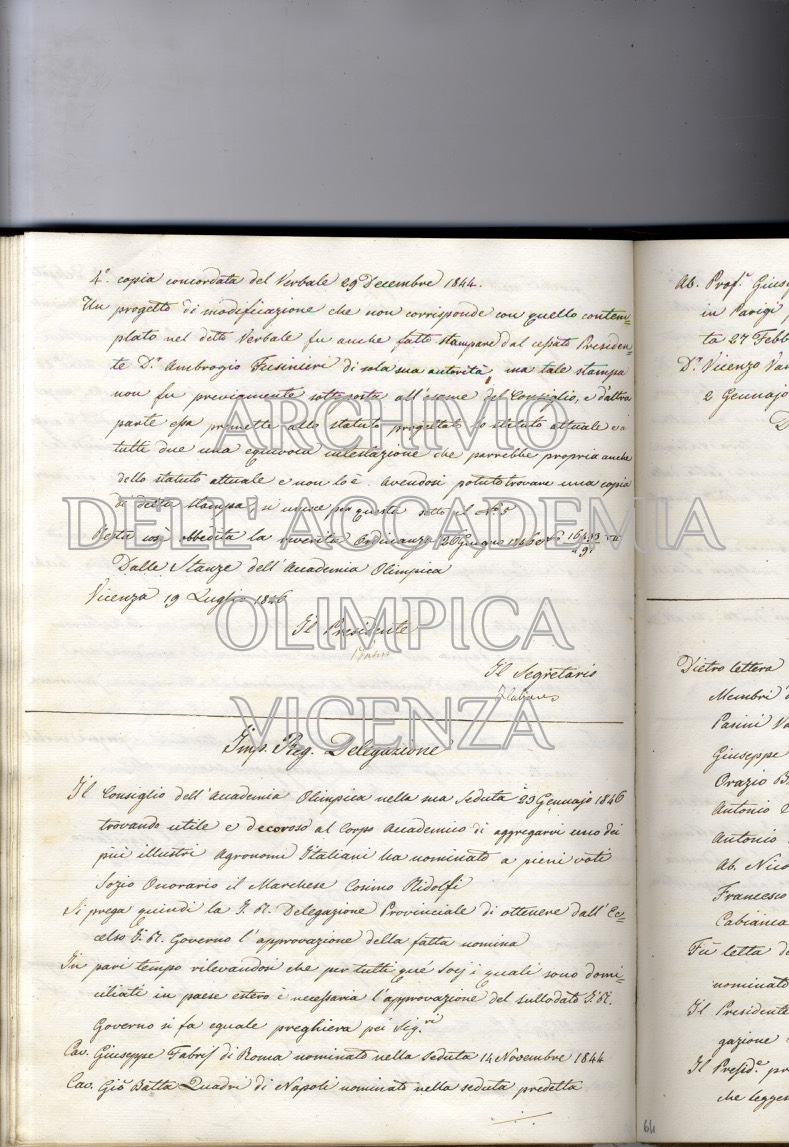 4.° copia concordata del Verbale 29 Decembre 1844.
Un progetto di modificazione che non corrisponde con quello contem=
plato nel detto Verbale fu anche fatto stampare dal cessato Presiden=
te D.r Ambrogio Fusinieri di sola sua autorità, ma tale stampa
non fu previamente sottoposta all'esame del Consiglio, e d'altra
parte essa premette allo statuto progettato lo statuto attuale e a
tutti due una equivoca intestazione che parrebbe propria anche
dello statuto attuale e non lo è. Avendosi potuto trovare una copia
di detta stampa, si unisce pur questa sotto il N.° 5
Resta così obbedita la riverita Ordinanza 26 Giugno 1846
Dalle Stanze dell'Accademia Olimpica
Vicenza 19 Luglio 1846
Il Presidente
Il Segretario
Imp. Reg. Delegazione
Il Consiglio dell'Accademia Olimpica nella sua Seduta 23 Gennajo 1846
trovando utile e decoroso al Corpo Accademico di aggregarvi uno dei
più illustri Agronomi Italiani ha nominato a pieni voti
Sozio Onorario il Marchese Cosimo Ridolfi
Si prega quindi la I. R. Delegazione Provinciale di ottenere dall'Ec=
celso I. R. Governo l'approvazione della fatta nomina
In pari tempo rilevandosi che per tutti que' Socj i quali sono domi=
ciliati in paese estero è necessaria l'approvazione del sullodato I. R.
Governo si fa eguale preghiera pei Sig.ri
Cav. Giuseppe Fabris di Roma nominato nella seduta 14 Novembre 1844
Cav. Gio Batta Quadri di Napoli nominato nella seduta predetta
Ab. Prof.r Gius
in Parigi
ta 27 Febb
D.r Vicenzo
2 Gennajo
Dietro lettera
Membri
Pasini
Giuseppe
Orazio
Antonio
Antonio
Ab. Nico
Francesco
Cabianca
Fu letta
nominato
Il Presidente
gazione
Il Presid.e
che legger
64
ARCHIVIO
DELL'ACCADEMIA
OLIMPICA
VICENZA